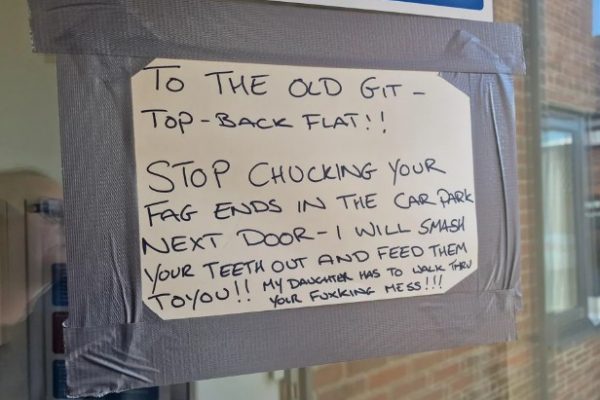 TO THE OLD GIT -
TOP-BACK FLAT!!
STOP CHUCKING YOUR
FAG ENDS IN THE CAR PARK
NEXT DOOR - I WILL SMASH
YOUR TEETH OUT AND FEED THEM
TO YOU!! MY DAUGHTER HAS TO WALK THRU
YOUR FUXKING MESS!!!